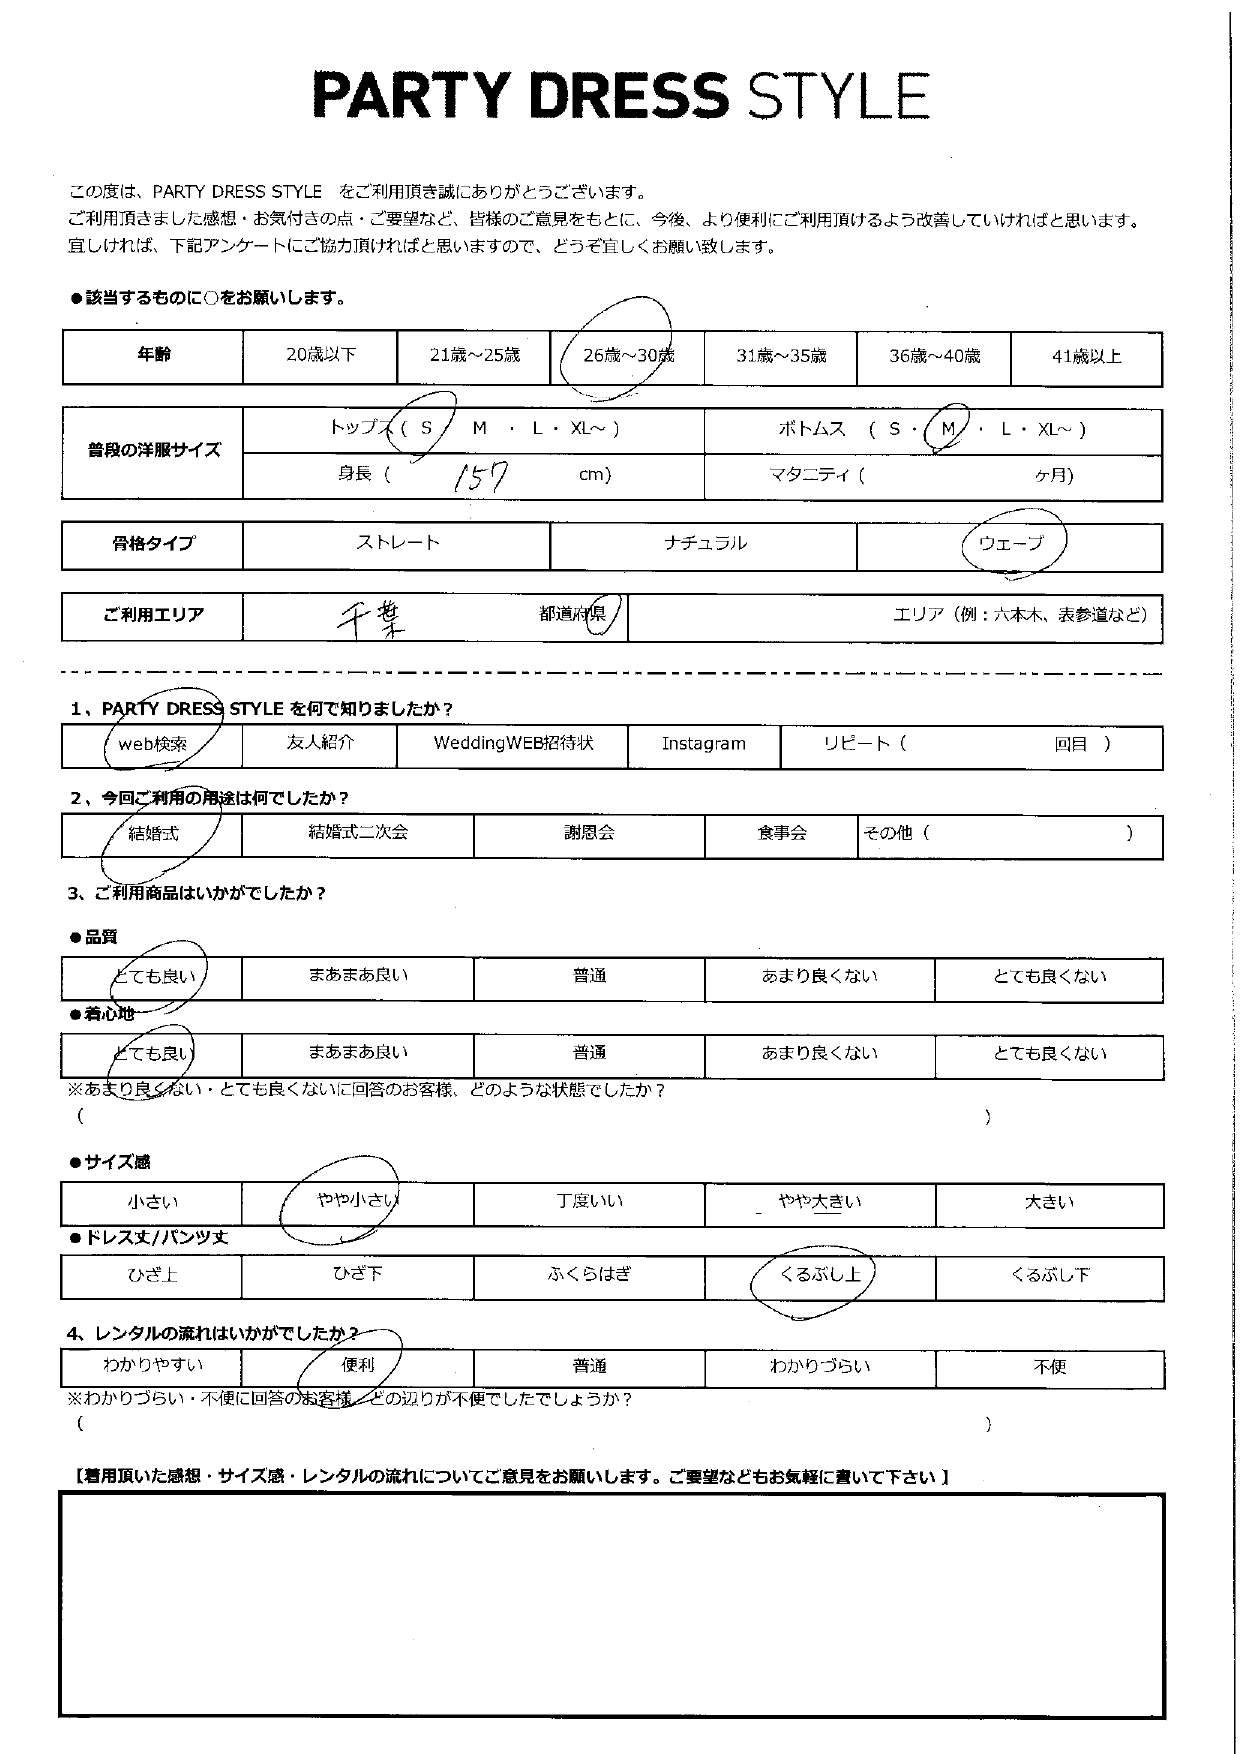 PARTY DRESS STYLE
この度は、PARTY DRESS STYLE をご利用頂き誠にありがとうございます。
ご利用頂きました感想・お気付きの点・ご要望など、皆様のご意見をもとに、今後、より便利にご利用頂けるよう改善していければと思います。
宜しければ、下記アンケートにご協力頂ければと思いますので、どうぞ宜しくお願い致します。
●該当するものに○をお願いします。
年齢 20歳以下 21歳～25歳 26歳～30歳 31歳～35歳 36歳～40歳 41歳以上
普段の洋服サイズ トップス ( S M ・ L ・ XL～ ) ボトムス ( S ・ M ・ L ・ XL～ )
身長 ( 157 cm) マタニティ ( ヶ月)
骨格タイプ ストレート ナチュラル ウェーブ
ご利用エリア 千葉 都道府県 エリア（例：六本木、表参道など）
1、PARTY DRESS STYLE を何で知りましたか？
web検索 友人紹介 WeddingWEB招待状 Instagram リピート ( 回目 )
2、今回ご利用の用途は何でしたか？
結婚式 結婚式二次会 謝恩会 食事会 その他 ( )
3、ご利用商品はいかがでしたか？
●品質
とても良い まあまあ良い 普通 あまり良くない とても良くない
●着心地
とても良い まあまあ良い 普通 あまり良くない とても良くない
※あまり良くない・とても良くないに回答のお客様、どのような状態でしたか？
( )
●サイズ感
小さい やや小さい 丁度いい やや大きい 大きい
●ドレス丈/パンツ丈
ひざ上 ひざ下 ふくらはぎ くるぶし上 くるぶし下
4、レンタルの流れはいかがでしたか？
わかりやすい 便利 普通 わかりづらい 不便
※わかりづらい・不便に回答のお客様、どの辺りが不便でしたでしょうか？
( )
【着用頂いた感想・サイズ感・レンタルの流れについてご意見をお願いします。ご要望などもお気軽に書いて下さい 】